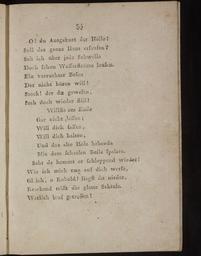 O! du Ausgeburt der Hölle!
Soll das ganze Haus ersaufen?
Seh ich über jede Schwelle
Doch schon Wasserströme laufen.
Ein verruchter Besen
Der nicht hören will!
Stock! der du gewesen,
Steh doch wieder still!
Willst am Ende
Gar nicht lassen;
Will dich fassen,
Will dich halten,
Und das alte Holz behende
Mit dem scharfen Beile spalten.
Seht da kommt er schleppend wieder!
Wie ich mich nur auf dich werfe,
Gleich, o Kobold! liegst du nieder,
Krachend trifft die glatte Schärfe.
Wahrlich brav getroffen!